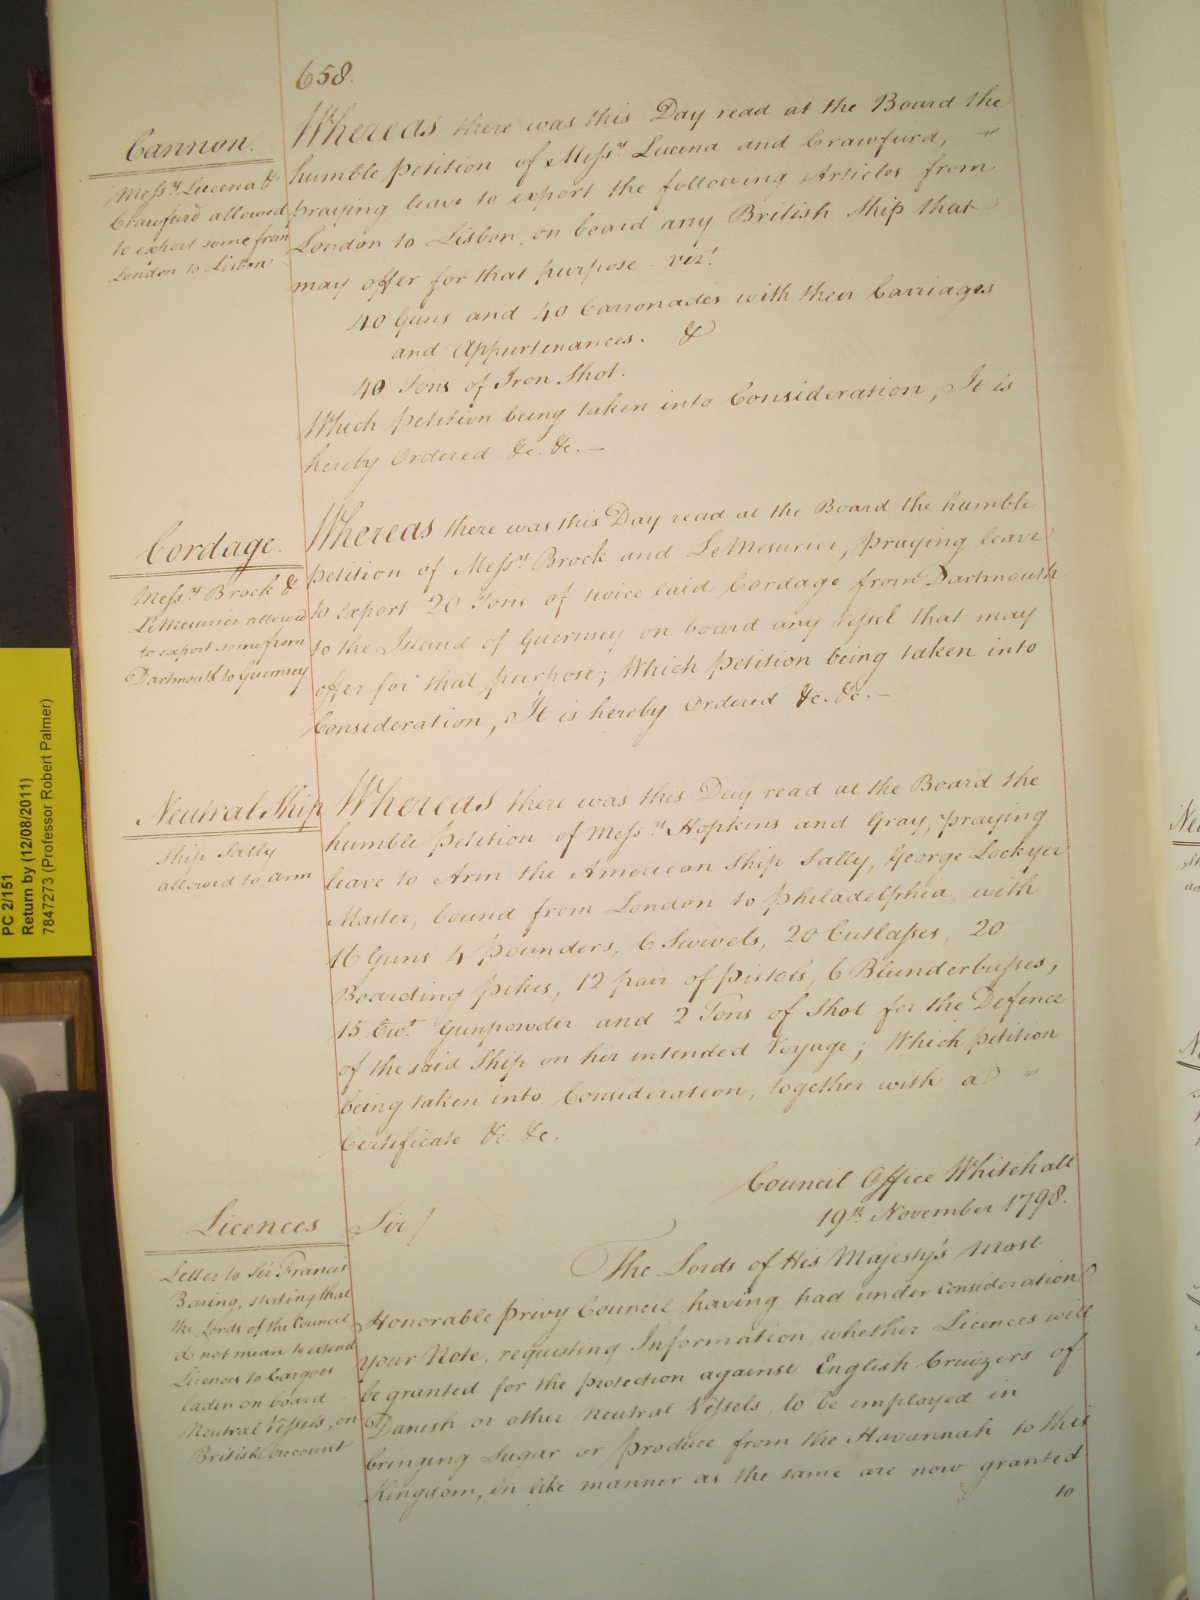 658.
Cannon.
Mess.rs Lucena &
Crawfurd allowed
to export some from
London to Lisbon
Whereas there was this Day read at the Board the
humble petition of Mess.rs Lucena and Crawfurd,
praying leave to export the following Articles from
London to Lisbon, on board any British Ship that
may offer for that purpose vizt.
40 Guns and 40 Carronades with their Carriages
and Appurtenances. &
40 Tons of Iron Shot.
Which Petition being taken into Consideration, It is
hereby Ordered &c. &c. —
Cordage.
Mess.rs Brock &
LeMesurier allowed
to export some from
Dartmouth to Guernsey
Whereas there was this Day read at the Board the humble
petition of Mess.rs Brock and LeMesurier, praying leave
to export 20 Tons of twice laid Cordage from Dartmouth
to the Island of Guernsey on board any Vessel that may
offer for that purpose; Which Petition being taken into
Consideration, It is hereby Ordered &c. &c. —
Neutral Ship
Ship Sally
allowed to arm
Whereas there was this Day read at the Board the
humble Petition of Mess.rs Hopkins and Gray, praying
leave to Arm the American Ship Sally, George Lockyer
Master, bound from London to Philadelphia, with
16 Guns 4 Pounders, 6 Swivels, 20 Cutlasses, 20
Boarding Pikes, 12 pair of Pistols, 6 Blunderbusses,
15 Cwt. Gunpowder and 2 Tons of Shot for the Defence
of the said Ship on her intended Voyage; Which Petition
being taken into Consideration, together with a
Certificate &c. &c.
Council Office Whitehall
19th November 1798.
Licences
Letter to Sir Francis
Baring, stating that
the Lords of the Council
do not mean to extend
Licences to Cargoes
laden on board
Neutral Vessels, on
British Account
Sir/
The Lords of His Majesty's most
Honorable Privy Council having had under consideration
your Note, requesting Information, whether Licences will
be granted for the protection against English Cruizers of
Danish or other Neutral Vessels, to be employed in
bringing Sugar or Produce from the Havannah to this
Kingdom, in like manner as the same are now granted
to
PC 2/151
Return by (12/08/2011)
7847273 (Professor Robert Palmer)